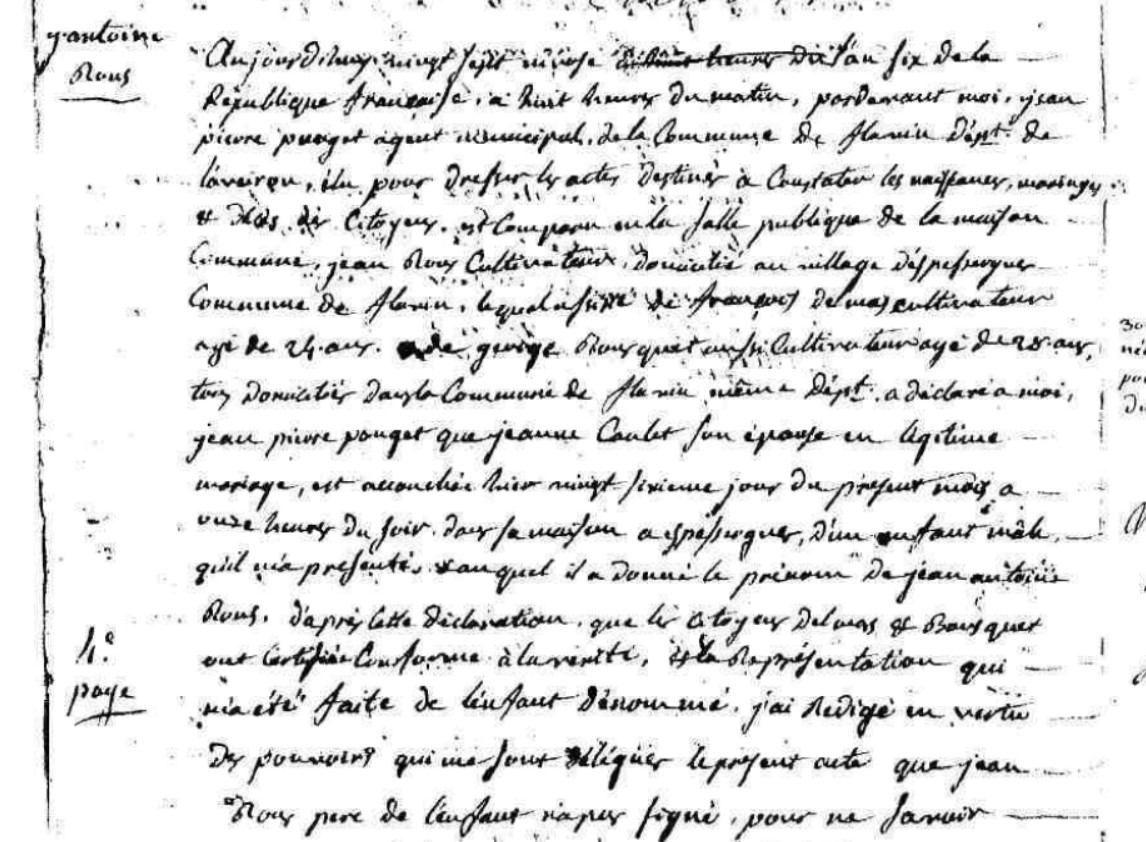 j. antoine
Rous
Aujourd'huy vingt sept nivose dit l'an six de la
République française, a huit heures du matin, pardevant moi, jean
pierre pouget agent municipal, de la Commune de flavin dépt. de
l'aveiron, élu pour dresser les actes destinés a Constater les naissances, mariages
& décés des Citoyens, est Comparu en la salle publique de la maison
Commune, jean Rous Cultivateur, domicilié au village d'espessergues
Commune de flavin, lequel assisté de françois delmas cultivateur
agé de 24 ans. & de george Bousquet aussi Cultivateur agé de 28 ans,
tous domiciliés dans la Commune de flavin même dépt. a déclaré a moi,
jean pierre pouget que jeanne Coulet son épouse en légitime
mariage, est accouchée hier vingt sixieme jour du présent mois a
onze heures du soir dans sa maison a espessergues, d'un enfant mâle
qu'il m'a presenté, & auquel il a donné le prénom de jean antoine
Rous. d'après cette déclaration, que les citoyens Delmas & Bousquet
ont Certifiée Conforme à la vérité, & la Représentation qui
m'a été faite de l'enfant dénommé. j'ai Redigé en vertu
des pouvoirs qui me sont délégués le présent acte que jean
Rous pere de l'enfant n'a pas signé, pour ne savoir
4.e
page